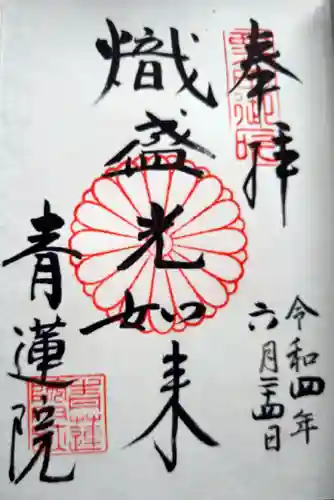 奉拝
令和四年
六月二十四日
熾盛光如来
青蓮院